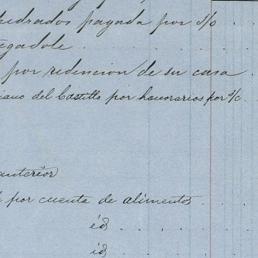 hidrados pagada por s/o
egadole
por redencion de su casa
iano del Castillo por honorarios por s/c
anterior
por cuenta de alimentos
id
id